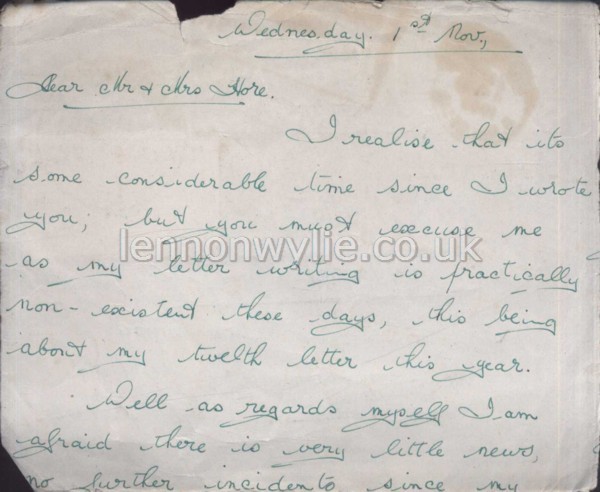 Wednesday. 1st Nov.,
Dear Mr & Mrs Hore.
I realise that its
some considerable time since I wrote
you; but you must excuse me
lennonwylie.co.uk
as my letter writing is practically
non-existent these days, this being
about my twelth letter this year.
Well as regards myself I am
afraid there is very little news,
no further incidents since my